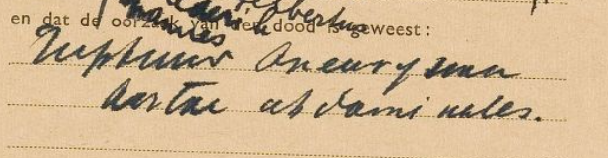 en dat de oorzaak van den dood is geweest:
Ruptuur Aneurysma
Aortae abdominales.